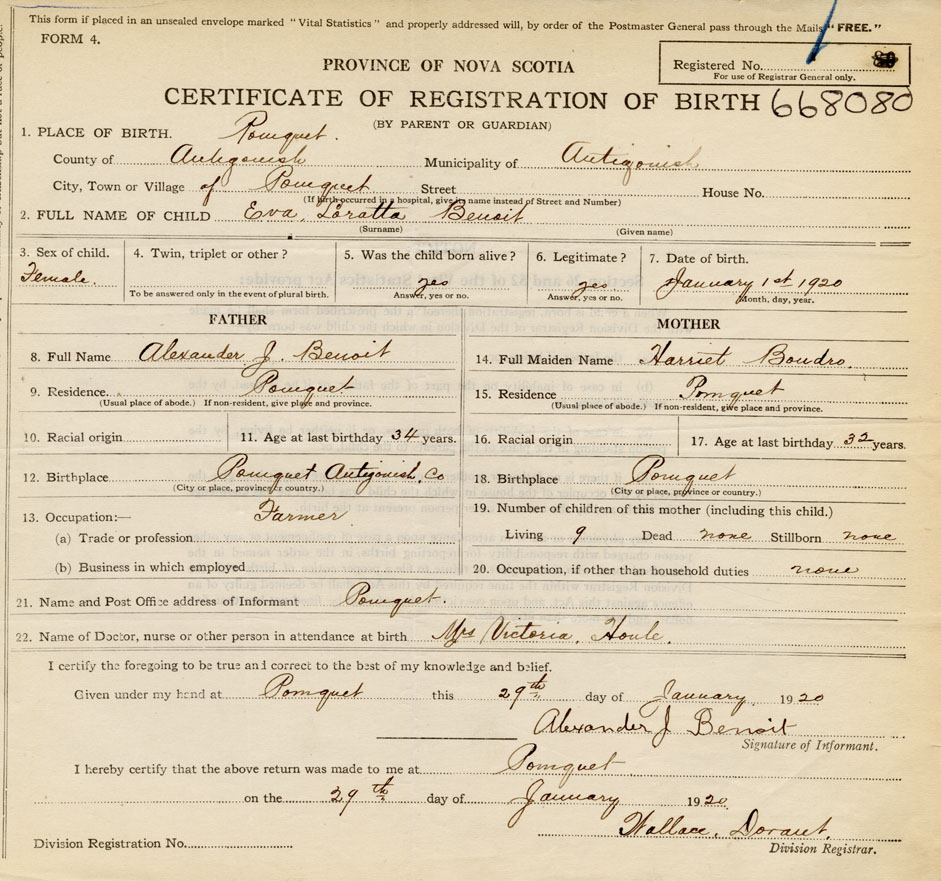 This form if placed in an unsealed envelope marked "Vital Statistics" and properly addressed will, by order of the Postmaster General pass through the Mails "FREE."
FORM 4.
Registered No.
For use of Registrar General only.
PROVINCE OF NOVA SCOTIA
CERTIFICATE OF REGISTRATION OF BIRTH 668080
(BY PARENT OR GUARDIAN)
1. PLACE OF BIRTH. Pomquet.
County of Antigonish Municipality of Antigonish
City, Town or Village of Pomquet Street House No.
(If birth occurred in a hospital, give its name instead of Street and Number)
2. FULL NAME OF CHILD Eva Loratta Benoit
(Surname) (Given name)
3. Sex of child. 4. Twin, triplet or other? 5. Was the child born alive? 6. Legitimate? 7. Date of birth.
Female. yes yes January 1st 1920
To be answered only in the event of plural birth. Answer, yes or no. Answer, yes or no. Month, day, year.
FATHER
8. Full Name Alexander J. Benoit
9. Residence. Pomquet
(Usual place of abode.) If non-resident, give place and province.
10. Racial origin 11. Age at last birthday 34 years.
12. Birthplace Pomquet Antigonish, Co
(City or place, province or country.)
13. Occupation:— Farmer
(a) Trade or profession
(b) Business in which employed
MOTHER
14. Full Maiden Name Harriet Boudro
15. Residence Pomquet
(Usual place of abode.) If non-resident, give place and province.
16. Racial origin 17. Age at last birthday 32 years.
18. Birthplace Pomquet
(City or place, province or country.)
19. Number of children of this mother (including this child.)
Living 9 Dead none Stillborn none
20. Occupation, if other than household duties none
21. Name and Post Office address of Informant Pomquet.
22. Name of Doctor, nurse or other person in attendance at birth Mrs Victoria, Houle.
I certify the foregoing to be true and correct to the best of my knowledge and belief.
Given under my hand at Pomquet this 29th day of January 1920
Alexander J Benoit
Signature of Informant.
I hereby certify that the above return was made to me at Pomquet
on the 29th day of January 1920
Wallace, Dorant.
Division Registrar.
Division Registration No.